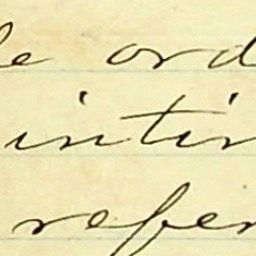 le ord
intin
refer